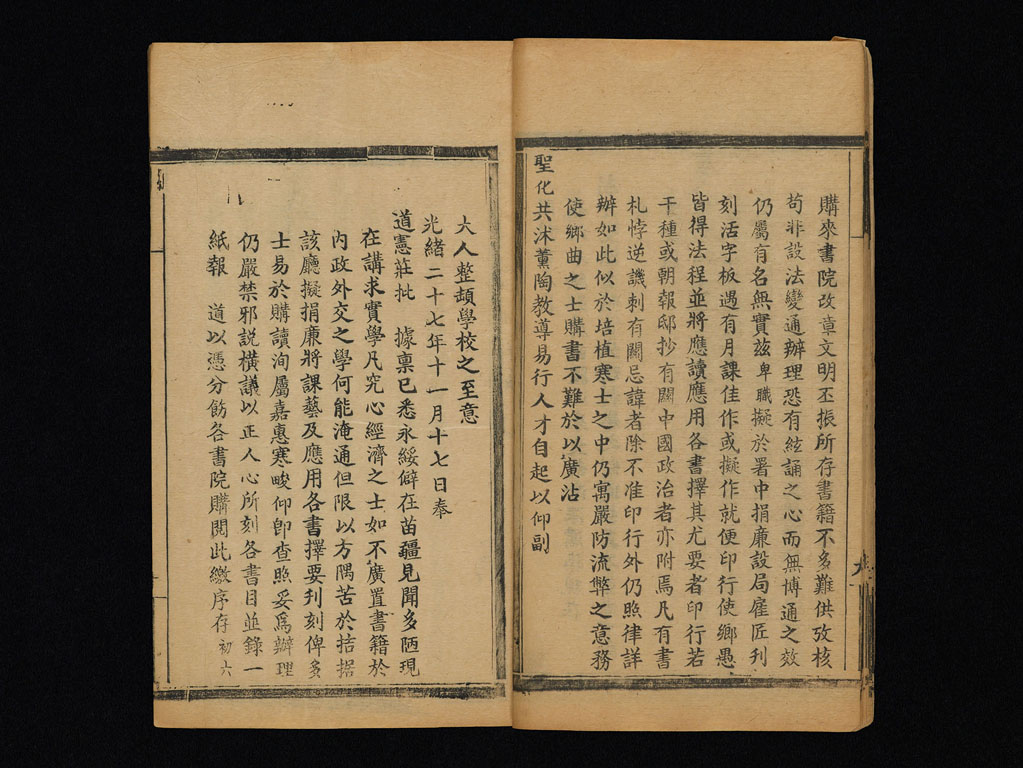 購來書院改章文明丕振所存書籍不多難供攷核
苟非設法變通辦理恐有絃誦之心而無博通之效
仍屬有名無實茲卑職擬於署中捐廉設局雇匠刊
刻活字板遇有月課佳作或擬作就便印行使鄉愚
皆得法程並將應讀應用各書擇其尤要者印行若
干種或朝報邸抄有關中國政治者亦附焉凡有書
札悖逆譏刺有關忌諱者除不准印行外仍照律詳
辦如此似於培植寒士之中仍寓嚴防流弊之意務
使鄉曲之士購書不難於以廣沾
聖化共沐薰陶教導易行人才自起以仰副
大人整頓學校之至意
光緒二十七年十一月十七日奉
道憲莊批 據稟已悉永綏僻在苗疆見聞多陋現
在講求實學凡究心經濟之士如不廣置書籍於
內政外交之學何能淹通但限以方隅苦於拮据
該廳擬捐廉將課藝及應用各書擇要刊刻俾多
士易於購讀洵屬嘉惠寒畯仰卽查照妥爲辦理
仍嚴禁邪說橫議以正人心所刻各書目並錄一
紙報 道以憑分飭各書院購閱此繳序存初六